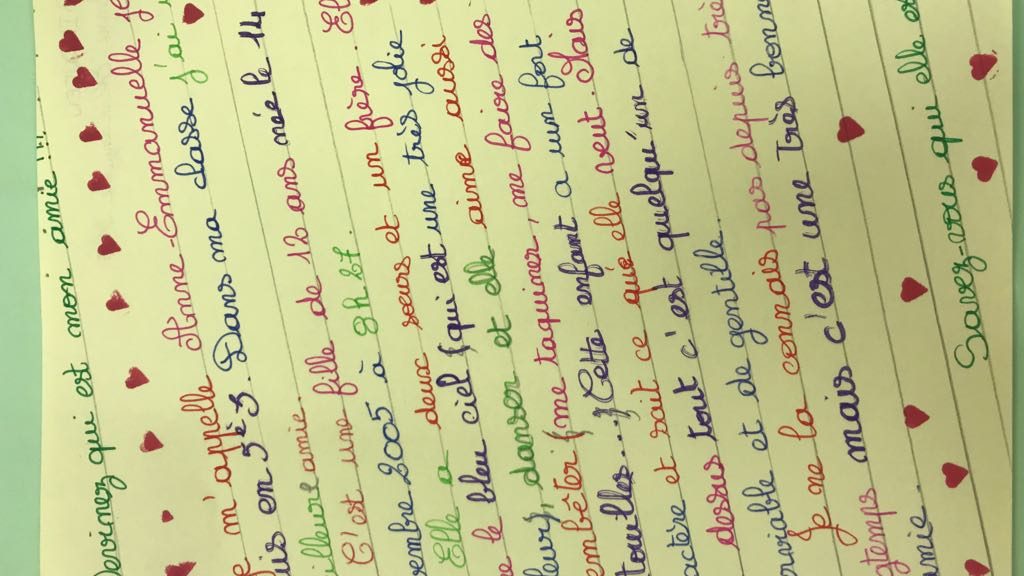 Devinez qui est mon âmie !!!
e m'appelle Anne-Emmanuelle je
uis en 5è3. Dans ma classe j'ai
illeure amie.
C'est une fille de 12 ans née le 14
vembre 2005 à 8h27.
Elle a deux soeurs et un frère. El
me le bleu ciel (qui est une très jolie
leur), danser et elle aime aussi
embêter (me taquiner, me faire des
touilles...) Cette enfant a un fort
actère et sait ce que elle veut. Mais
dessus tout c'est quelqu'un de
erviable et de gentille.
Je ne la connais pas depuis trè
gtemps mais c'est une Très bonne
amie.
Savez-vous qui elle es